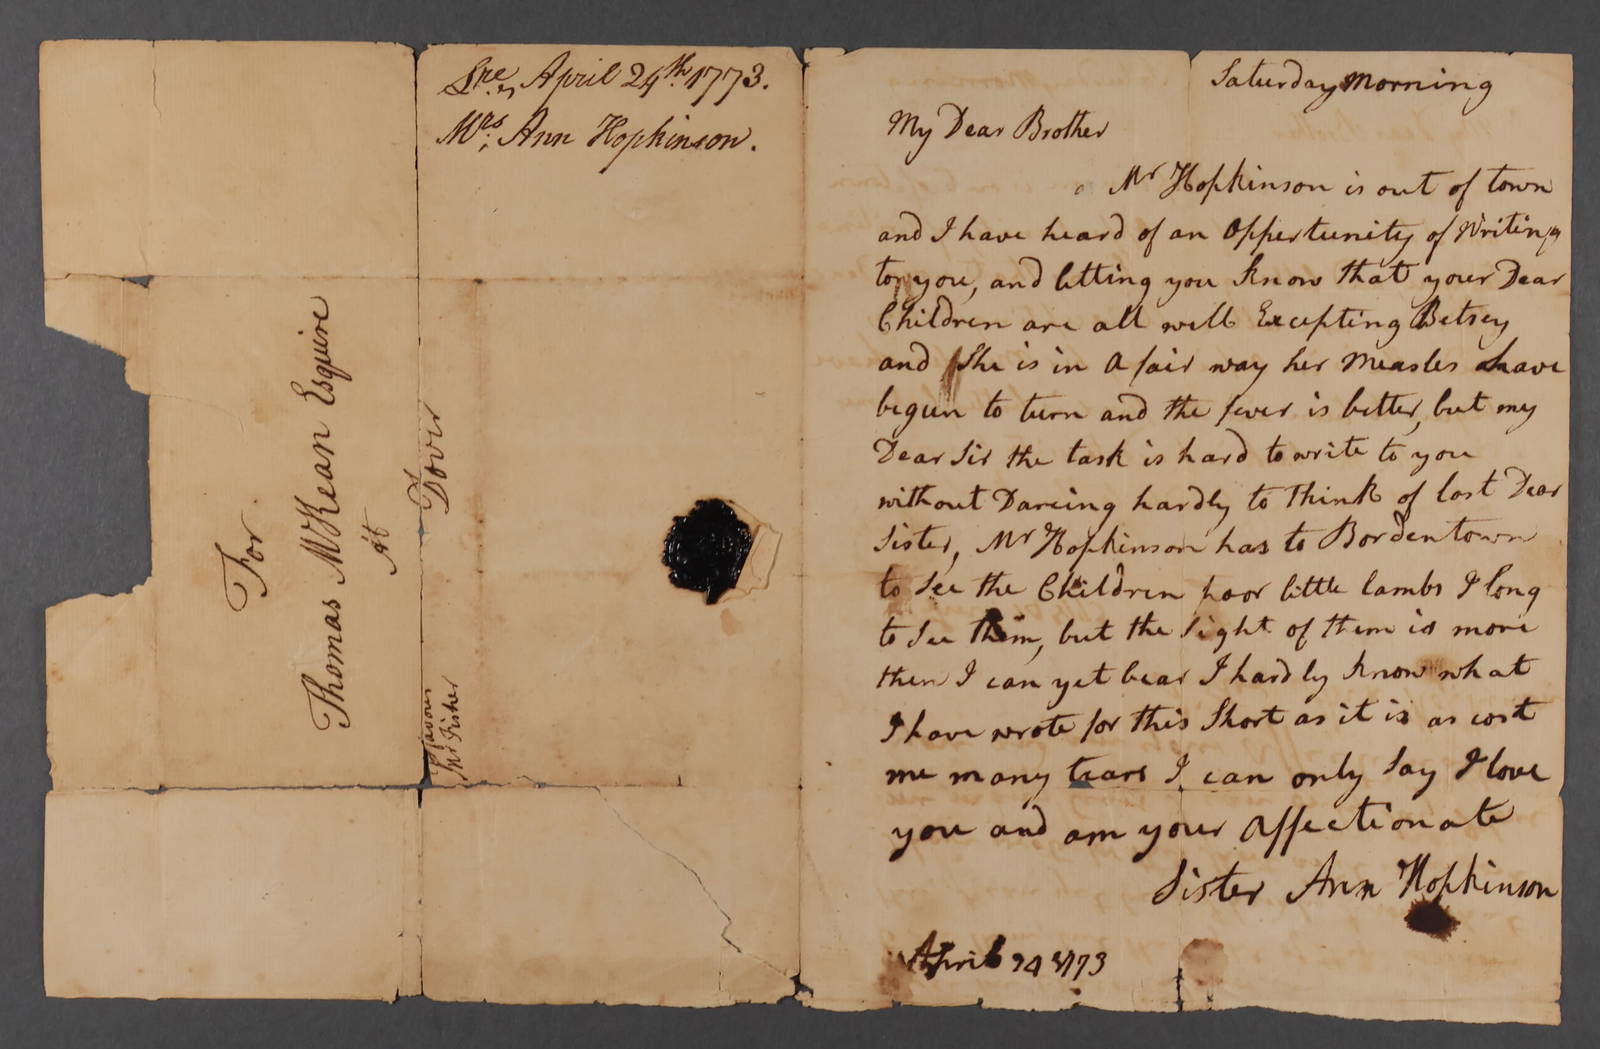 Lre, April 24th. 1773.
Mrs, Ann Hopkinson.
For
Thomas McKean Esquire
At
Dover
favour
Mr Fisher
Saturday Morning
My Dear Brother
Mr Hopkinson is out of town
and I have heard of an Oppertunity of Writing
to you, and letting you know that your Dear
Children are all well Excepting Betsey
and She is in a fair way her Measles have
begun to turn and the fever is better, but my
Dear Sir the task is hard to write to you
without Dareing hardly to think of lost Dear
Sister, Mr Hopkinson has to Bordentown
to See the Children poor little lambs I long
to See them, but the Sight of them is more
then I can yet bear I hardly know what
I have wrote for this Short as it is as cost
me many tears I can only Say I love
you and am your affectionate
Sister Ann Hopkinson
April 24 1773